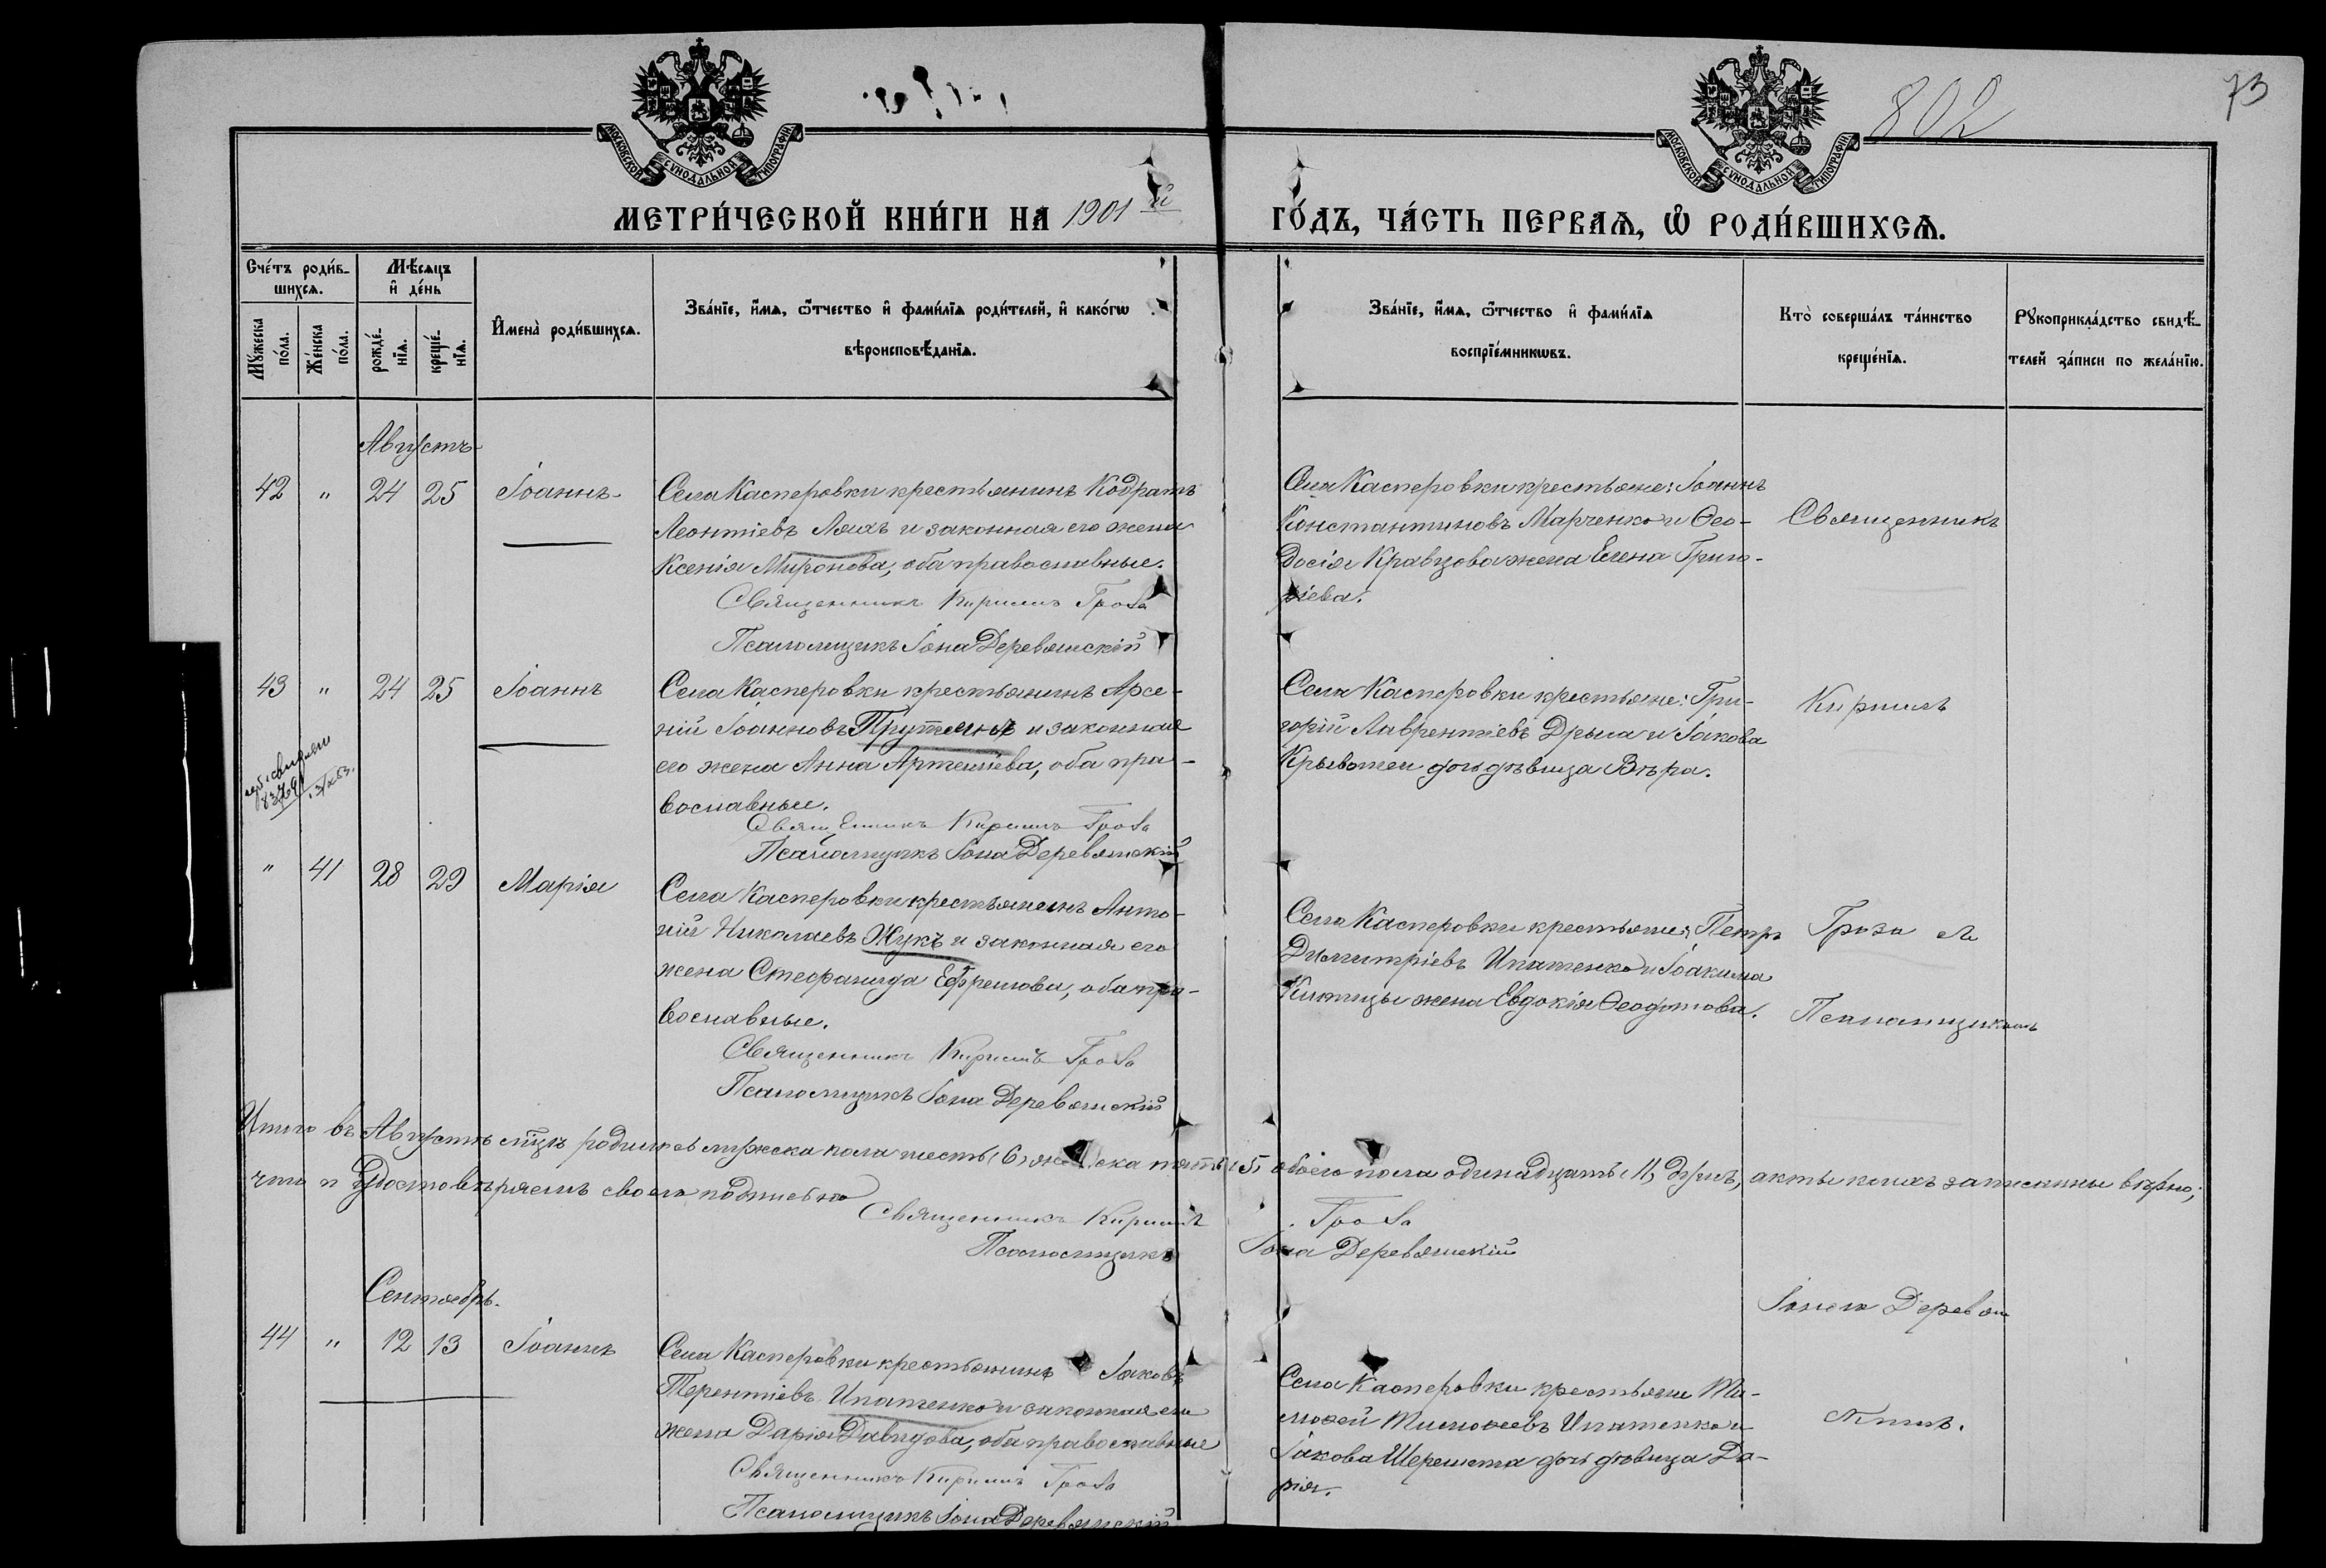 802
73
МОСКОВСКОЙ СѴНОДАЛЬНОЙ ТИПОГРАФІИ
МОСКОВСКОЙ СѴНОДАЛЬНОЙ ТИПОГРАФІИ
МЕТРИ́ЧЕСКОЙ КНИ́ГИ НА 1901 й ГО́ДЪ, ЧА́СТЬ ПЕРВАѦ, Ѡ҆ РОДИ́ВШИХСѦ.
Сче́тъ роди́в-
шихсѧ.
Мѣ́сѧцъ
и҆ де́нь
Мꙋ́жеска по́ла.
Же́нска по́ла.
рожде́-
нїѧ.
креще́-
нїѧ.
И҆мена̀ роди́вшихсѧ.
Зва́нїе, и҆́мѧ, ѻ҆́тчество и҆ фами́лїѧ роди́телей, и҆ како́гѡ
вѣроисповѣ́данїѧ.
Зва́нїе, и҆́мѧ, ѻ҆́тчество и҆ фами́лїѧ
воспрїе́мникѡвъ.
Кто̀ соверша́лъ та́инство
креще́нїѧ.
Рꙋкоприкла́дство свидѣ́-
телей за́писи по жела́нїю.
Августъ
42 " 24 25 Іоаннъ
Села Касперовки крестьянинъ Кодратъ
Леонтіевъ Ляхъ и законная его жена
Ксенія Миронова, оба православные.
Священникъ Кириллъ Гроза
Псаломщикъ Іона Деревянскій
Села Касперовки крестьяне: Іоаннъ
Константиновъ Марченко и Ѳео-
досія Кравцова жена Елена Григо-
ріева.
Священникъ
43 " 24 25 Іоаннъ
Села Касперовки крестьянинъ Арсе-
ній Іоанновъ Прутянъ и законная
его жена Анна Артеміева, оба пра-
вославные.
Священникъ Кириллъ Гроза
Псаломщикъ Іона Деревянскій
Села Касперовки крестьяне: Гри-
горій Лаврентіевъ Дрыга и Іакова
дочь дѣвица Вѣра.
Кириллъ
" 41 28 29 Марія
Села Касперовки крестьянинъ Анто-
ній Николаевъ Жукъ и законная его
жена Стефанида Ефремова, оба пра-
вославные.
Священникъ Кириллъ Гроза
Псаломщикъ Іона Деревянскій
Села Касперовки крестьяне: Петръ
Димитріевъ Ипатенко и Іоакима
жена Евдокія Ѳеодотова.
Гроза съ
Псаломщикомъ
Итого въ Августѣ мцѣ родилось мужеска пола шесть (6) женска пять (5) обоего пола одинадцать (11) душъ, акты коихъ записаны вѣрно;
что и удостовѣряемъ своею подписью
Священникъ Кириллъ Гроза
Псаломщикъ Іона Деревянскій
Сентябрь.
44 " 12 13 Іоаннъ
Села Касперовки крестьянинъ Іаковъ
Терентіевъ Ипатенко и законная его
жена Дарія Давидова, оба православные
Священникъ Кириллъ Гроза
Псаломщикъ Іона Деревянскій
Села Касперовки крестьяне Ти-
моѳей Тимоѳеевъ Ипатенко и
Іакова Шеремета дочь дѣвица Да-
рія.
Іоною Деревян
скимъ.